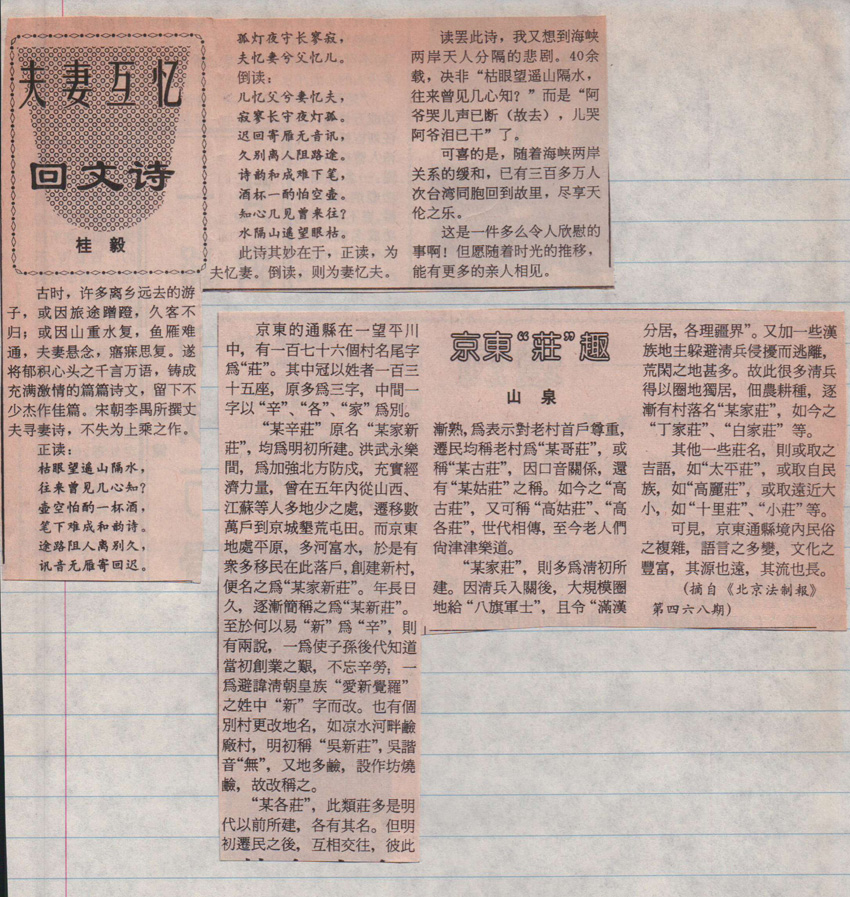 夫妻互忆
回文诗
桂 毅
古时，许多离乡远去的游
子，或因旅途蹭蹬，久客不
归；或因山重水复，鱼雁难
通，夫妻悬念，寤寐思复。遂
将郁积心头之千言万语，铸成
充满激情的篇篇诗文，留下不
少杰作佳篇。宋朝李禺所撰丈
夫寻妻诗，不失为上乘之作。
正读：
枯眼望遥山隔水，
往来曾见几心知？
壶空怕酌一杯酒，
笔下难成和韵诗。
途路阻人离别久，
讯音无雁寄回迟。
孤灯夜守长寥寂，
夫忆妻兮父忆儿。
倒读：
儿忆父兮妻忆夫，
寂寥长守夜灯孤。
迟回寄雁无音讯，
久别离人阻路途。
诗韵和成难下笔，
酒杯一酌怕空壶。
知心几见曾来往？
水隔山遥望眼枯。
此诗其妙在于，正读，为
夫忆妻。倒读，则为妻忆夫。
读罢此诗，我又想到海峡
两岸天人分隔的悲剧。40余
载，决非“枯眼望遥山隔水，
往来曾见几心知？”而是“阿
爷哭儿声已断（故去），儿哭
阿爷泪已干”了。
可喜的是，随着海峡两岸
关系的缓和，已有三百多万人
次台湾同胞回到故里，尽享天
伦之乐。
这是一件多么令人欣慰的
事啊！但愿随着时光的推移，
能有更多的亲人相见。
京東“莊”趣
山 泉
京東的通縣在一望平川
中，有一百七十六個村名尾字
爲“莊”。其中冠以姓者一百三
十五座，原多爲三字，中間一
字以“辛”、“各”、“家”爲別。
“某辛莊”原名“某家新
莊”，均爲明初所建。洪武永樂
間，爲加強北方防戍，充實經
濟力量，曾在五年內從山西、
江蘇等人多地少之處，遷移數
萬戶到京城墾荒屯田。而京東
地處平原，多河富水，於是有
衆多移民在此落戶，創建新村，
便名之爲“某家新莊”。年長日
久，逐漸簡稱之爲“某新莊”。
至於何以易“新”爲“辛”，則
有兩說，一爲使子孫後代知道
當初創業之艱，不忘辛勞；一
爲避諱淸朝皇族“愛新覺羅”
之姓中“新”字而改。也有個
別村更改地名，如凉水河畔鹼
廠村，明初稱“吳新莊”，吳諧
音“無”，又地多鹼，設作坊燒
鹼，故改稱之。
“某各莊”，此類莊多是明
代以前所建，各有其名。但明
初遷民之後，互相交往，彼此
漸熟，爲表示對老村首戶尊重，
遷民均稱老村爲“某哥莊”，或
稱“某古莊”，因口音關係，還
有“某姑莊”之稱。如今之“高
古莊”，又可稱“高姑莊”、“高
各莊”，世代相傳，至今老人們
尙津津樂道。
“某家莊”，則多爲淸初所
建。因淸兵入關後，大規模圈
地給“八旗軍士”，且令“滿漢
分居，各理疆界”。又加一些漢
族地主躲避淸兵侵擾而逃離，
荒閑之地甚多。故此很多淸兵
得以圈地獨居，佃農耕種，逐
漸有村落名“某家莊”，如今之
“丁家莊”、“白家莊”等。
其他一些莊名，則或取之
吉語，如“太平莊”，或取自民
族，如“高麗莊”，或取遠近大
小，如“十里莊”、“小莊”等。
可見，京東通縣境內民俗
之複雜，語言之多變，文化之
豐富，其源也遠，其流也長。
（摘自《北京法制報》
第四六八期）